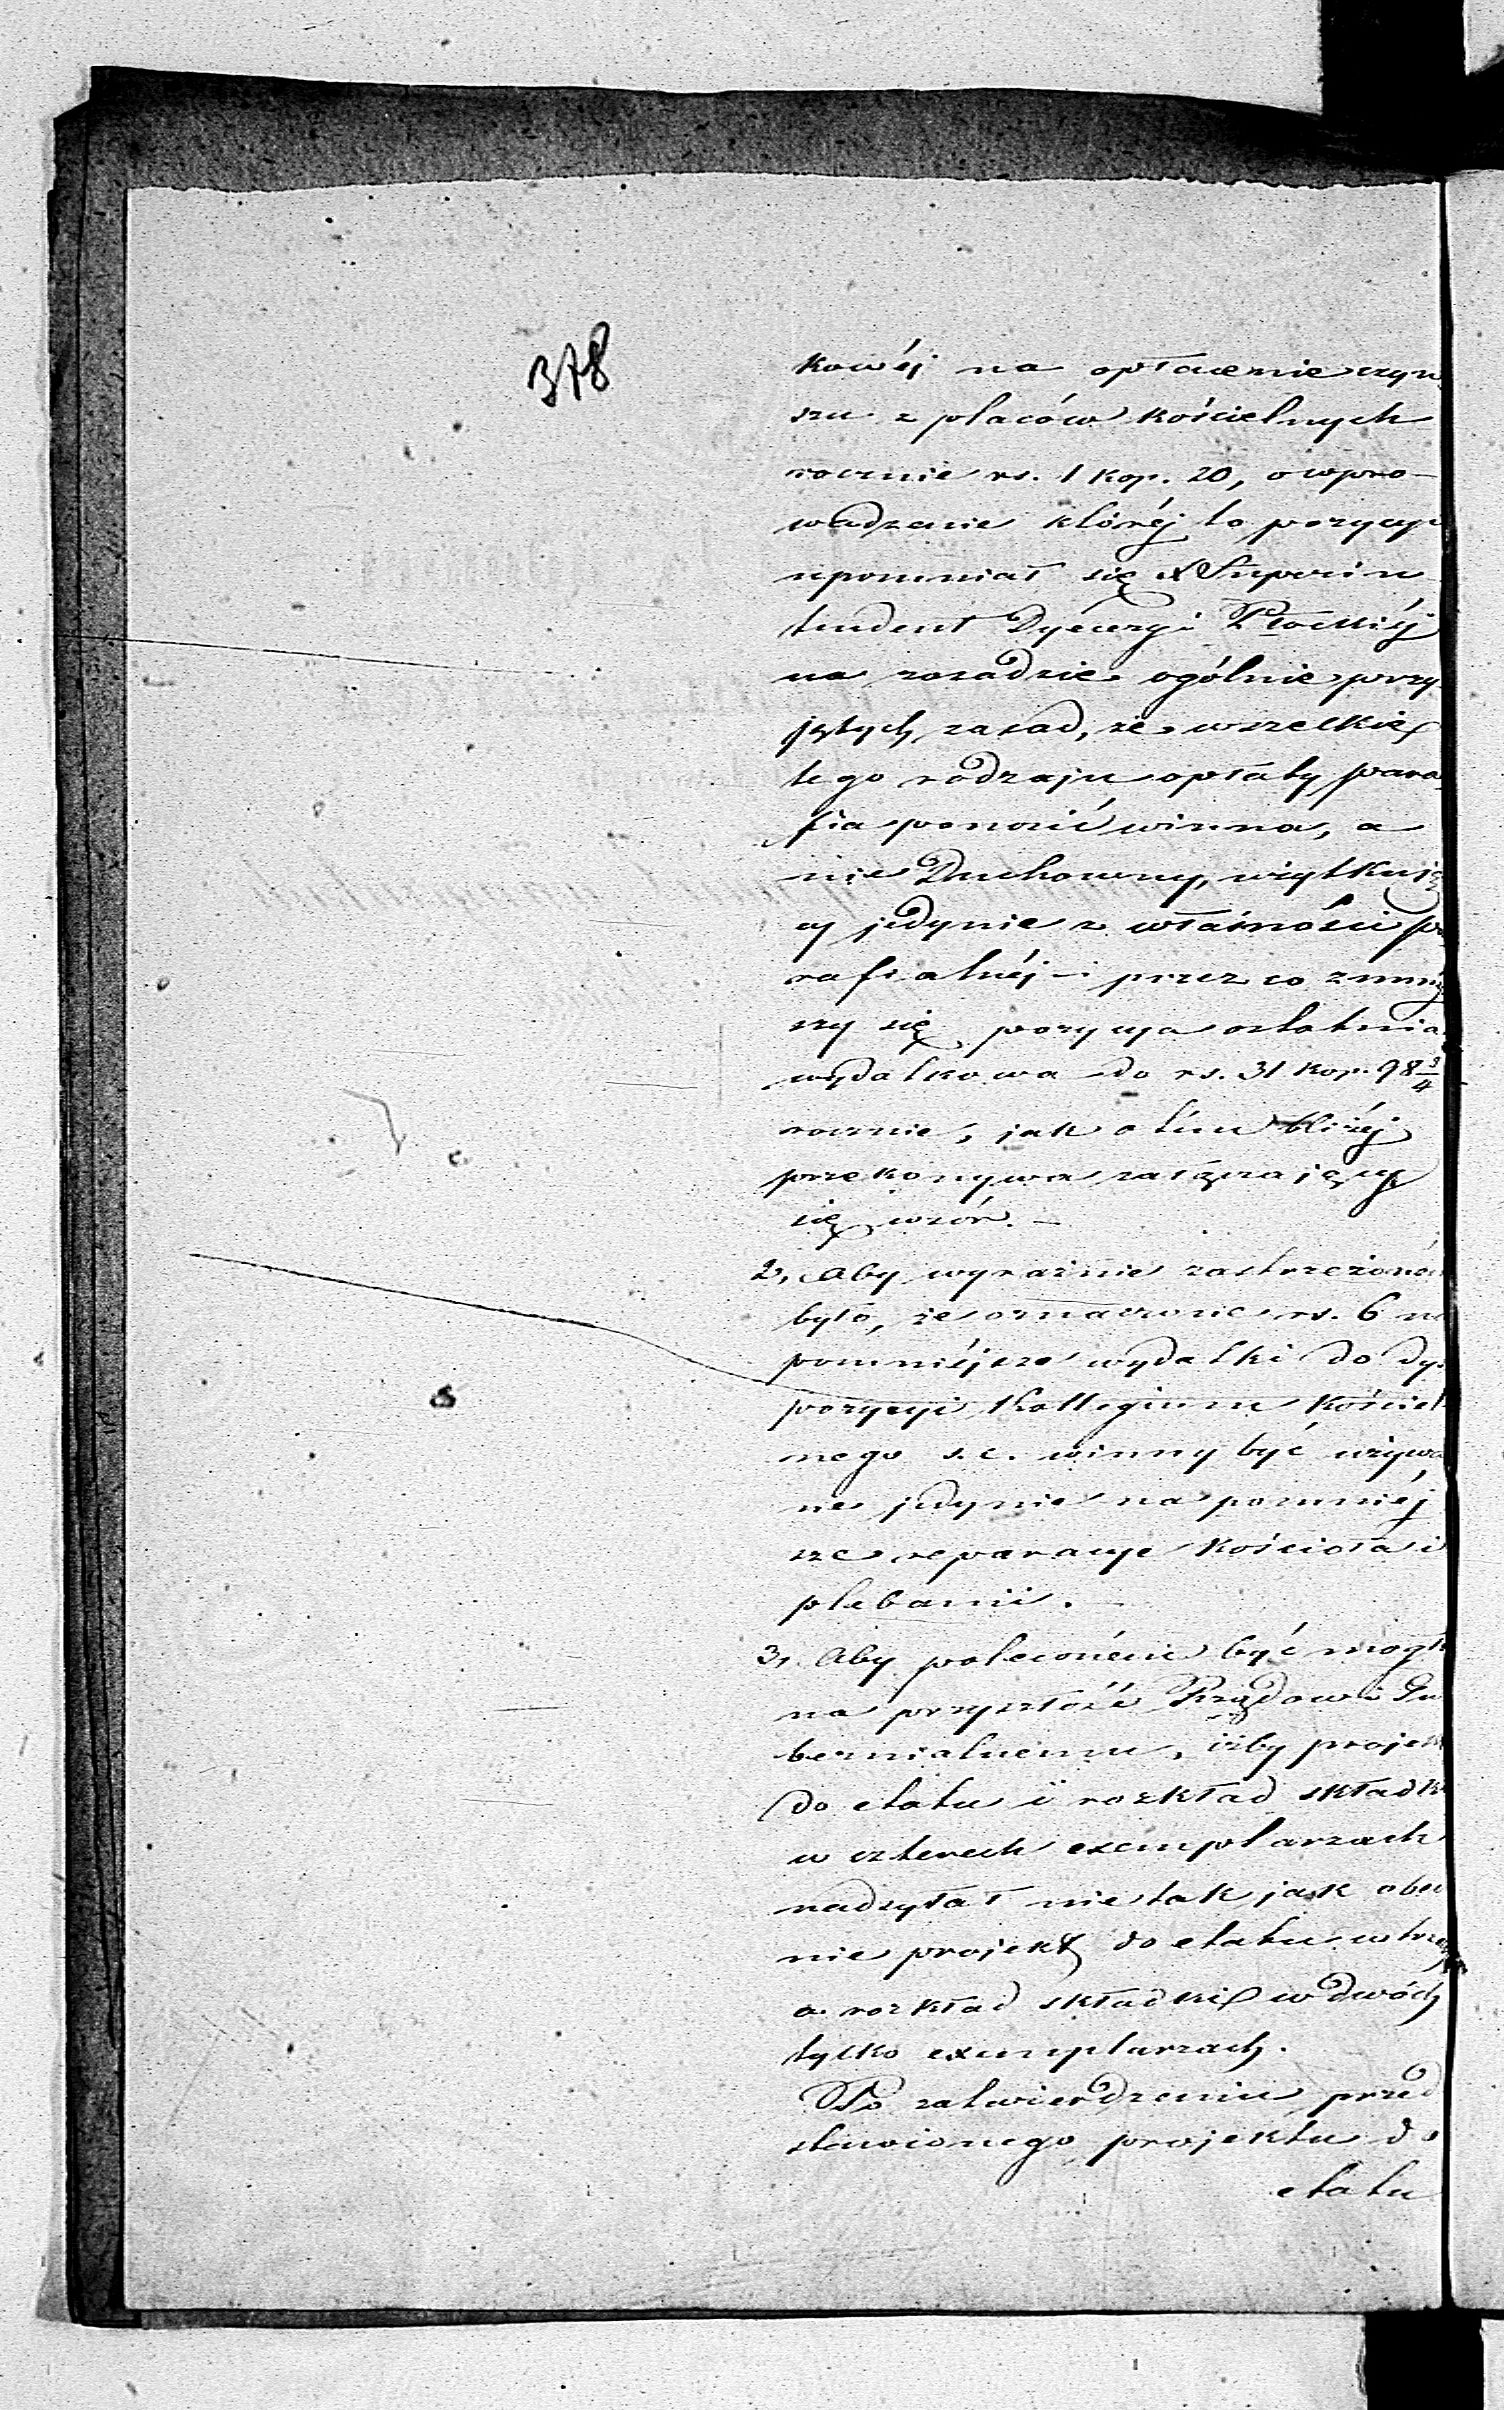 378
kowéj na opłacenie czyn
szu z placów kościelnych
rocznie rs. 1 kop. 20, o wpro-
wadzenie któréj to pozycyi
upomniał się X Superin
tendent Dyecezyi Płockiéj
na zasadzie ogólnie przy
jętych zasad, że wszelkie
tego rodzaju opłaty para
fia ponosić winna, a
nie Duchowny, użytkują
cy jedynie z własności pa
rafialnéj - i przez co zmniej
szy się pozycya ostatnia
wydatkowa do rs. 31 kop. 98 3/4
rocznie, jak o tém bliżéj
przekonywa załączający
się wzór. -
2, Aby wyraźnie zastrzeżono
było, że oznaczone rs. 6 na
pomniéjsze wydatki do dys
pozycyi Kollegium Kościel
nego s. c. winny być używa
ne jedynie na pomniéj
sze reparacye kościoła i
plebanii. -
3, Aby poleconém być mogło
na przyszłość Rządowi Gu
bernialnemu, iżby projekt
do etatu i rozkład składki
w czterech exemplarzach
nadsyłał nie tak jak obec
nie projekt do etatu w trzech
a rozkład składki w dwóch
tylko exemplarzach.
Po zatwierdzeniu przed
stawionego projektu do
etatu